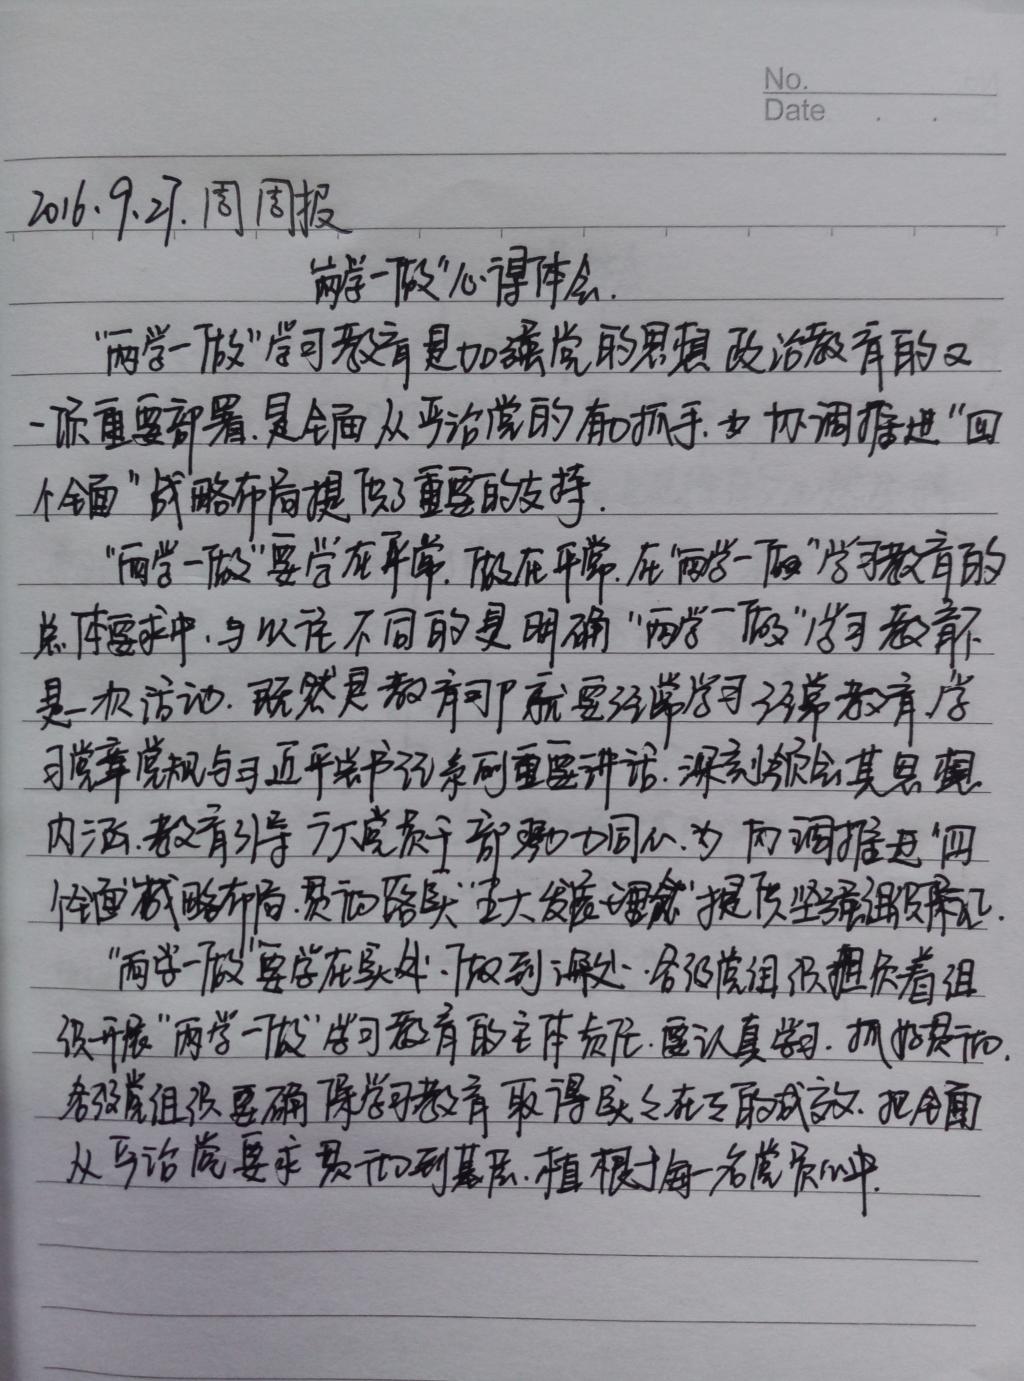 No.
Date . .
2016.9.27.周周报
"两学一做"心得体会.
"两学一做"学习教育是加强党的思想政治教育的又
一项重要部署.是全面从严治党的有力抓手.为协调推进"四
个全面"战略布局提供了重要的支持.
"两学一做"要学在平常.做在平常.在"两学一做"学习教育的
总体要求中.与以往不同的是明确"两学一做"学习教育不
是一次活动.既然是教育 就要经常学习经常教育.学
习党章党规与习近平总书记系列重要讲话.深刻领会其思想
内涵.教育引导广大党员干部 同心.为 调推进"四
个全面"战略布局.贯彻落实"五大发展理念"提供坚强组织保证.
"两学一做"要学在实处.做到深处.各级党组织担负着组
织开展"两学一做"学习教育的主体责任.要认真学习.抓好贯彻.
各级党组织要确保学习教育取得实实在在的成效.把全面
从严治党要求贯彻到基层.植根于每一名党员心中.